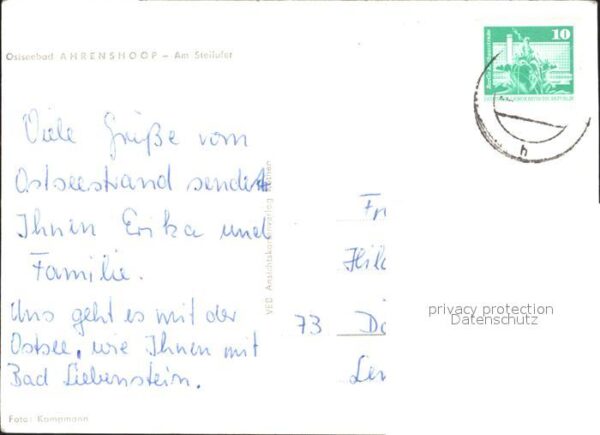 Ostseebad AHRENSHOOP – Am Steilufer
10
DEUTSCHE DEMOKRATISCHE REPUBLIK
h
Viele Grüße vom
Ostseestrand sendet
Ihnen Erika und
Familie.
Uns geht es mit der
Ostsee, wie Ihnen mit
Bad Liebenstein.
VEB Ansichtskartenverlag
Fr
Hil
73 Dö
Len
privacy protection
Datenschutz
Foto: Kampmann